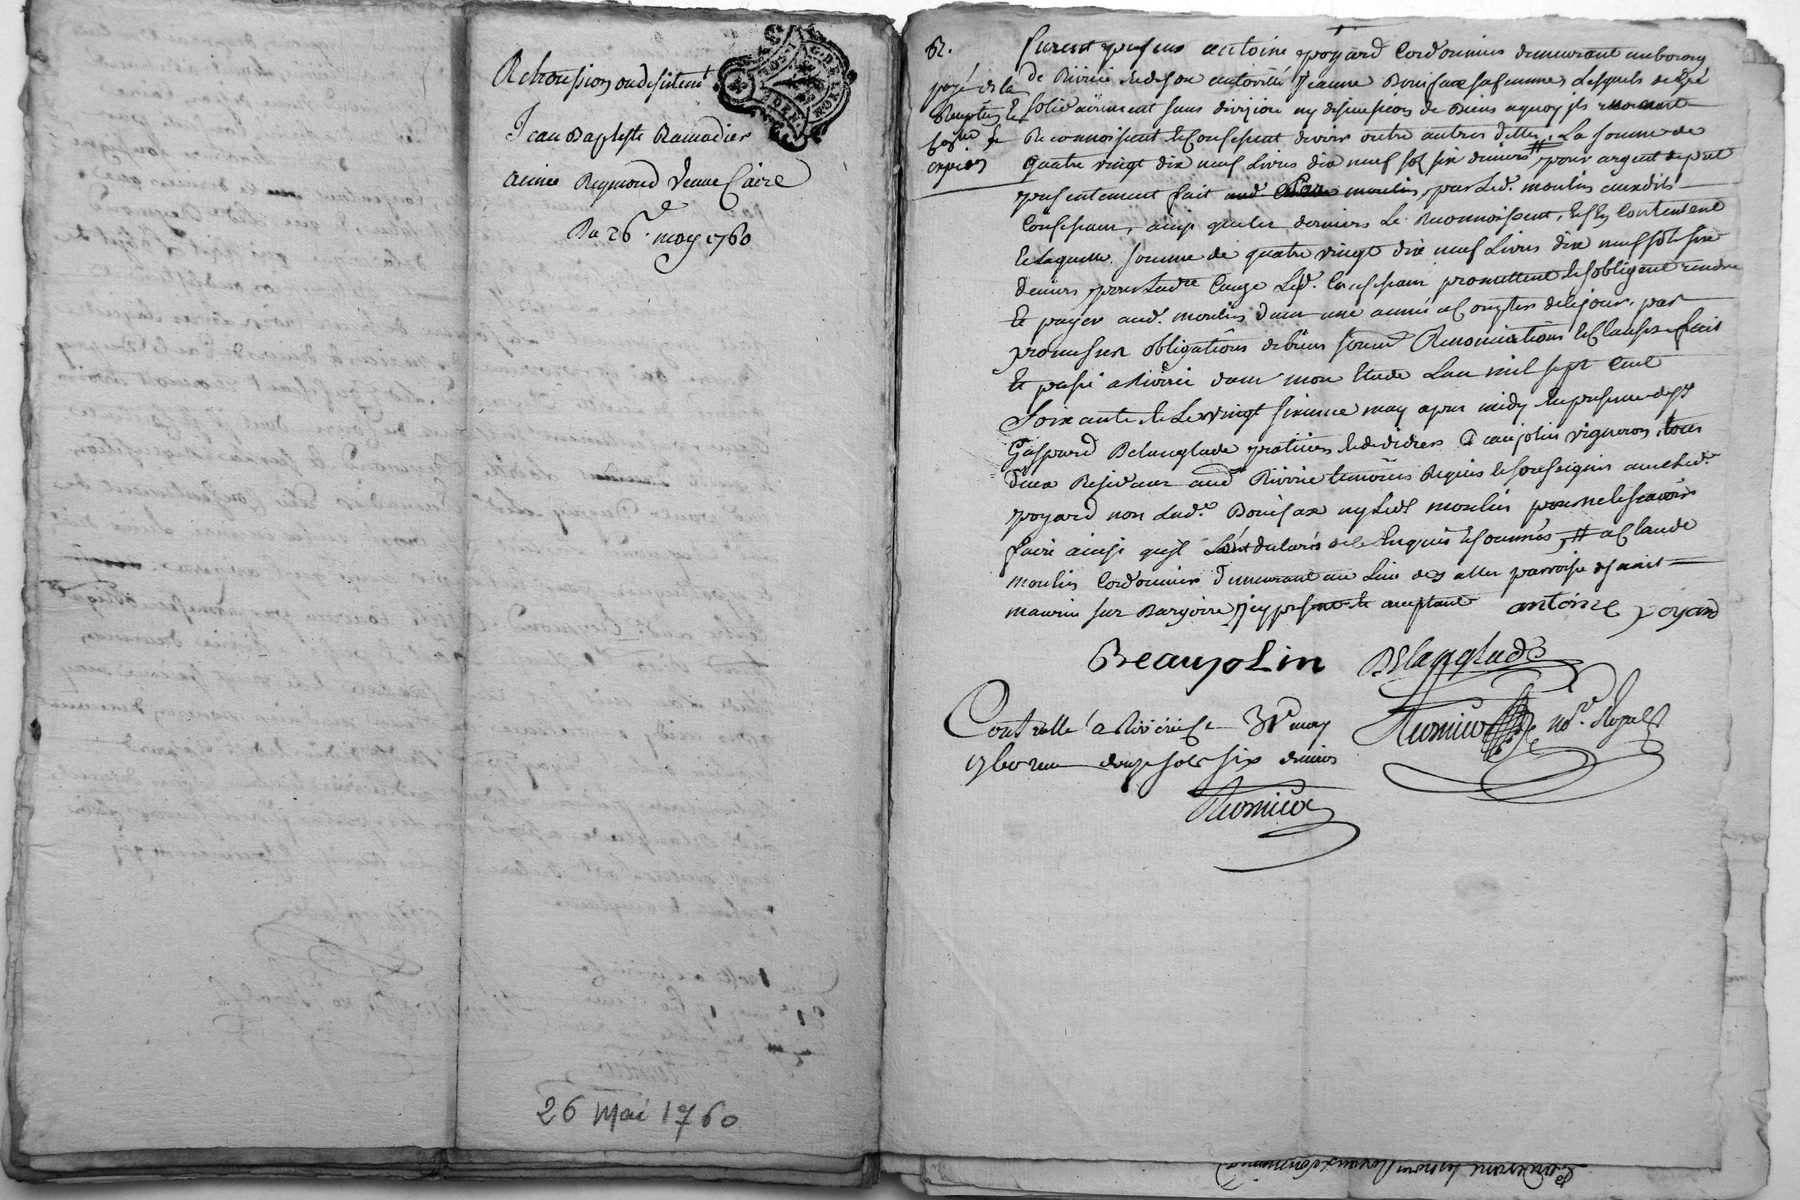 Retrocession ou desistem.t
Jean Baptiste Ramadier
aimée Reymond veuve Caire
Du 26.e may 1760
26 Mai 1760
62.
furent presens antoine poyard Cordonnier demeurant au bourg
de Riverie et de son autorité Jeanne Boniface sa femme, Lesquels de gré
solidairement sans division ny discussion de Biens a quoy ils renoncent
Reconnoissent et Confessent devoir outre autres dettes, # La somme de
quatre vingt dix neuf Livres dix neuf sols six deniers, pour argent de pret
presentement fait aud. moulin, par Led. moulin auxdits
Confessans, ainsi que les derniers Le Reconnoissent, et s'en Contentent
Et Laquelle somme de quatre vingt dix neuf Livres dix neuf sols six
deniers pour Ladite Cause Lesd. Confessans promettent et s'obligent rendre
Et payer aud. moulin dans une année a Compter de ce jour, par
promesses obligations de biens soumis Renonciations et Clauses fait
Et passé a Riverie dans mon Etude L'an mil sept Cent
Soixante et Le vingt sixieme may apres midy En presence de s.r
Gaspard Belanglade praticien et de didier Beaujolin vigneron, tous
deux Residans aud. Riverie temoins Requis et soussignés avec Led.
poyard non Lad.e Boniface ny Led. moulin pour ne le scavoir
faire ainsi qu'ils L'ont declarés de ce Enquis et sommés, # a Claude
moulin Cordonnier demeurant au Lieu des patroisse de saint
maurice sur Dargoire, icy present et acceptant antoine poyard
Beaujolin Belanglade
Controllé a Riverie Le 31e may
1760 reçu douze sols six deniers
not.re Royal